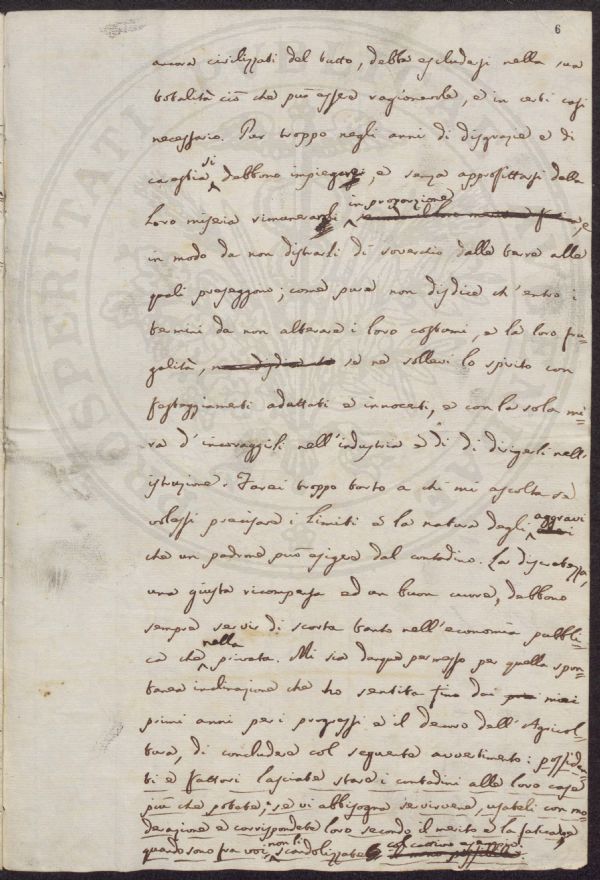 6
ancora civilizzati del tutto, debba escludersi nella sua
totalità ciò che può essere ragionevole, e in certi casi
necessario. Pur troppo negli anni di disgrazie e di
carestia si debbono impiegare, e senza approfittarsi della
loro miseria rimunerarli in proporzione, e
in modo da non distrarli di soverchio dalle terre alle
quali preseggono; come pure non disdice ch'entro i
termini da non alterare i loro costumi, e la loro fru-
galità, se ne sollevi lo spirito con
festeggiamenti adattati e innocenti, e con la sola mi-
ra d'incoraggirli nell'industria e di di dirigerli nell'
istruzione. Farei troppo torto a chi mi ascolta se
volessi precisare i limiti e la natura degli aggravi
che un padrone può esigere dal contadino. La discretezza,
una giusta ricompensa ed un buon cuore, debbono
sempre servir di scorta tanto nell'economia pubbli-
ca che nella privata. Mi sia dunque permesso per quella spon-
tanea inclinazione che ho sentita fino dai miei
primi anni per i progressi e il decoro dell'Agricol-
tura, di concludere col seguente avvertimento: possiden-
ti e fattori lasciate stare i contadini alle loro case
più che potete; se vi abbisogna servirvene, usateli con mo-
derazione e corrispondete loro secondo il merito e la fatica, e
quando sono fra voi non li scandolizzate col cattivo esempio.
PROSPERITATI